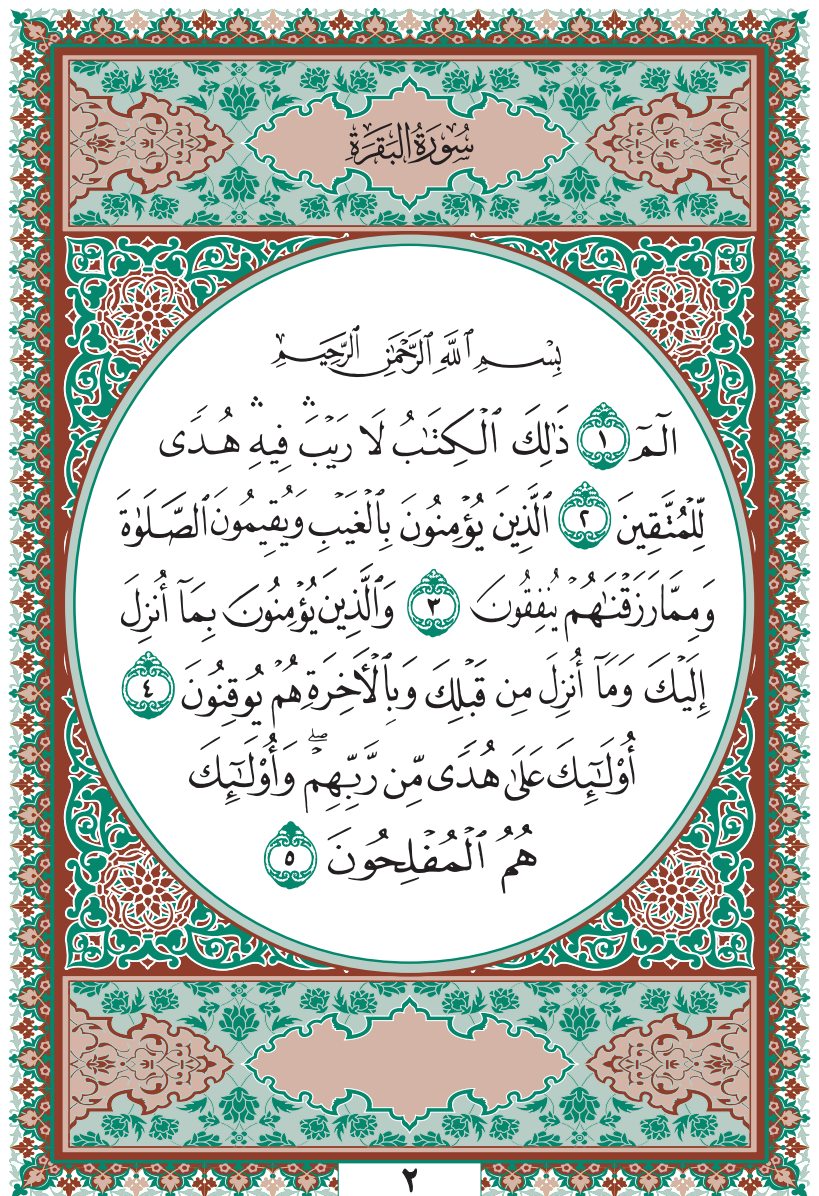 سُورَةُ البَقَرَةِ
بِسْمِ ٱللَّهِ ٱلرَّحْمَٰنِ ٱلرَّحِيمِ
الٓمٓ ١ ذَٰلِكَ ٱلْكِتَٰبُ لَا رَيْبَ ۛ فِيهِ ۛ هُدًى
لِّلْمُتَّقِينَ ٢ ٱلَّذِينَ يُؤْمِنُونَ بِٱلْغَيْبِ وَيُقِيمُونَ ٱلصَّلَوٰةَ
وَمِمَّا رَزَقْنَٰهُمْ يُنفِقُونَ ٣ وَٱلَّذِينَ يُؤْمِنُونَ بِمَآ أُنزِلَ
إِلَيْكَ وَمَآ أُنزِلَ مِن قَبْلِكَ وَبِٱلْأَخِرَةِ هُمْ يُوقِنُونَ ٤
أُو۟لَٰٓئِكَ عَلَىٰ هُدًى مِّن رَّبِّهِمْ ۖ وَأُو۟لَٰٓئِكَ
هُمُ ٱلْمُفْلِحُونَ ٥
٢